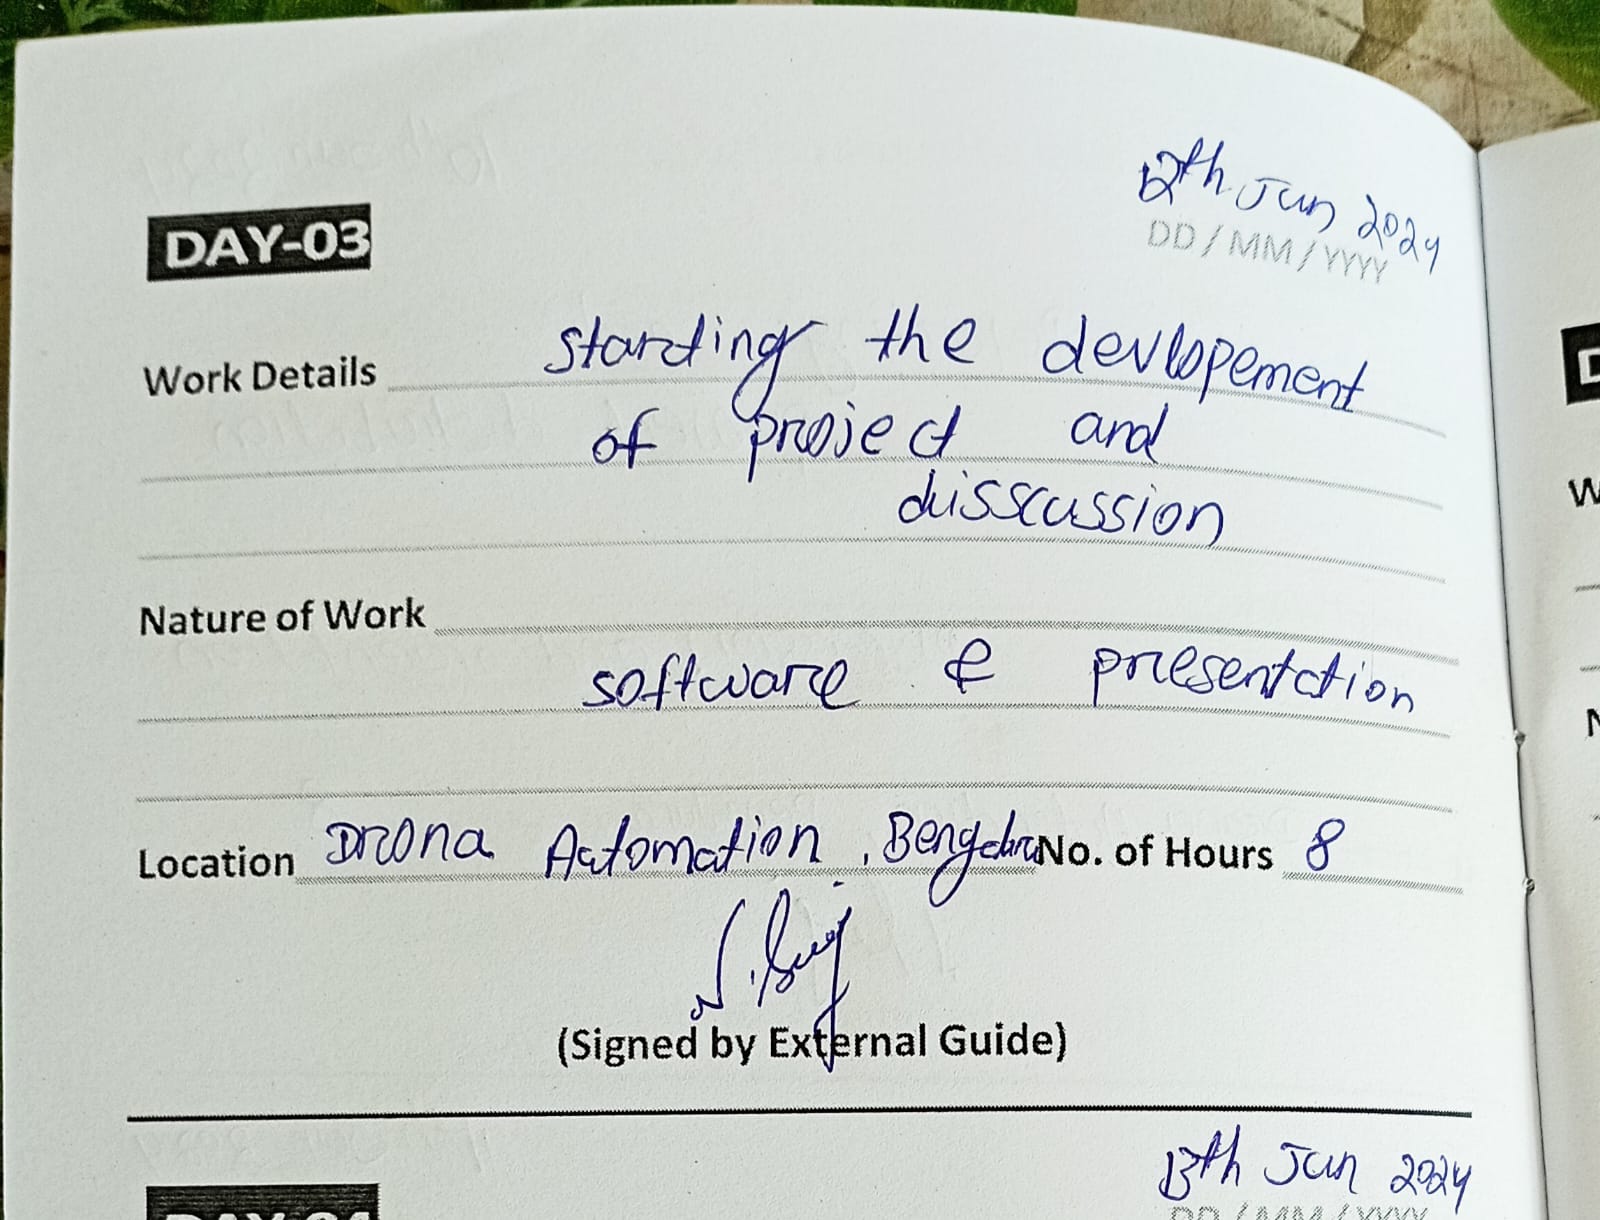 12th Jun 2024
DAY-03
DD / MM / YYYY
Work Details starting the devlopement
of project and
disscussion
Nature of Work
software & presentation
Location Drona Automation, Bengaluru No. of Hours 8
(Signed by External Guide)
13th Jun 2024
DAY-04
DD / MM / YYYY